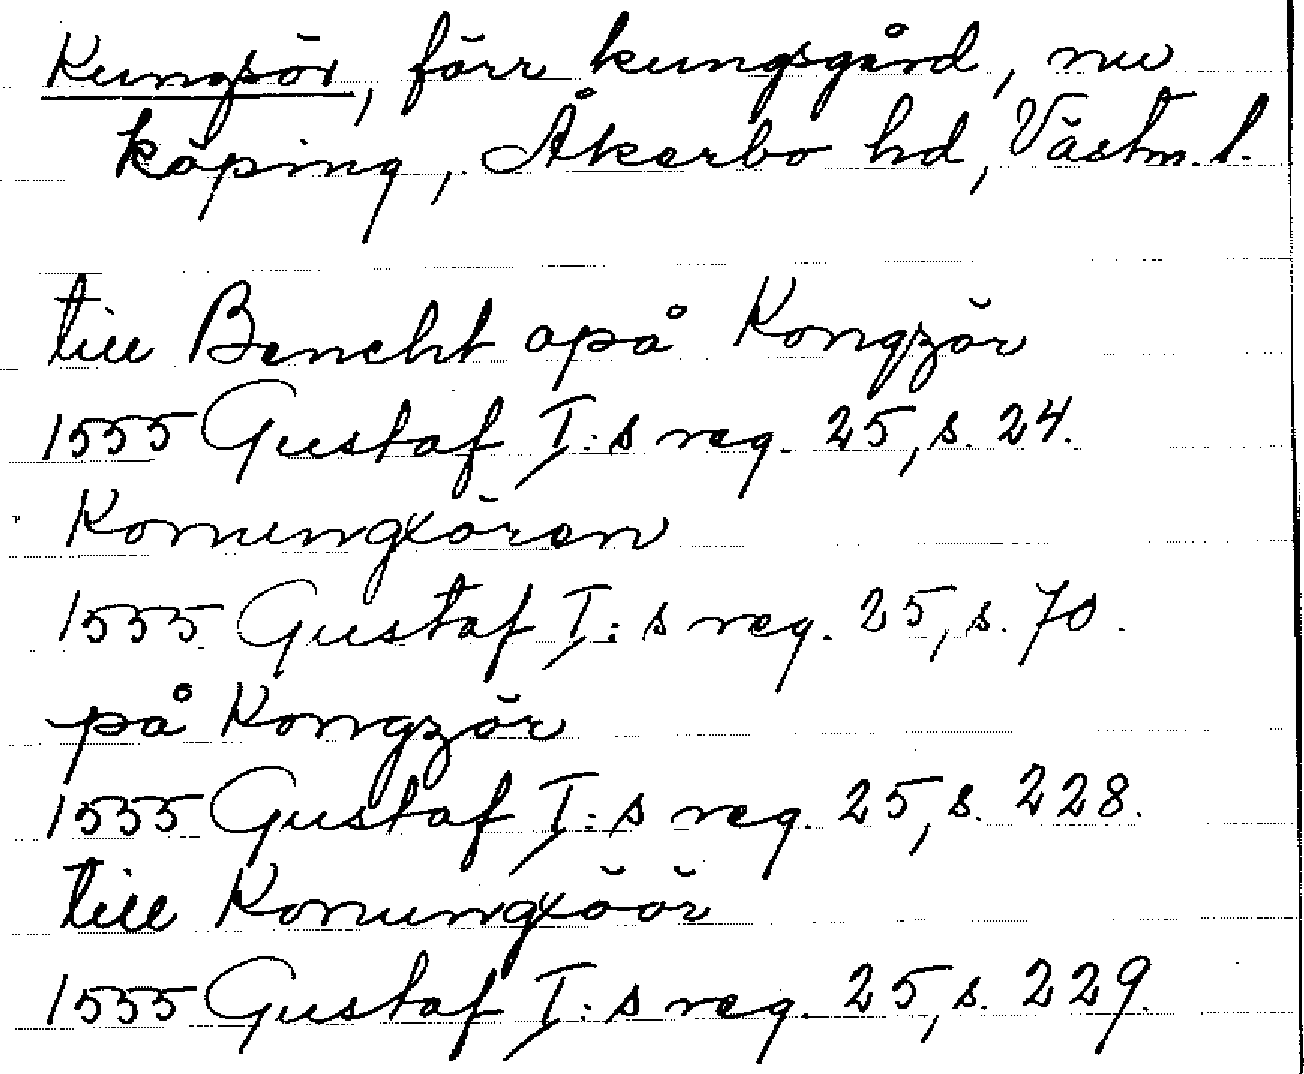 Kungsör, förr kungsgård, nu
köping, Åkerbo hd, Västm. l.
till Bencht apå Kongzör
1555 Gustaf I:s reg. 25, s. 24.
Konungxören
1555 Gustaf I:s reg. 25, s. 70.
på Kongzör
1555 Gustaf I:s reg. 25, s. 228.
till Konungxöör
1555 Gustaf I:s reg. 25, s. 229.